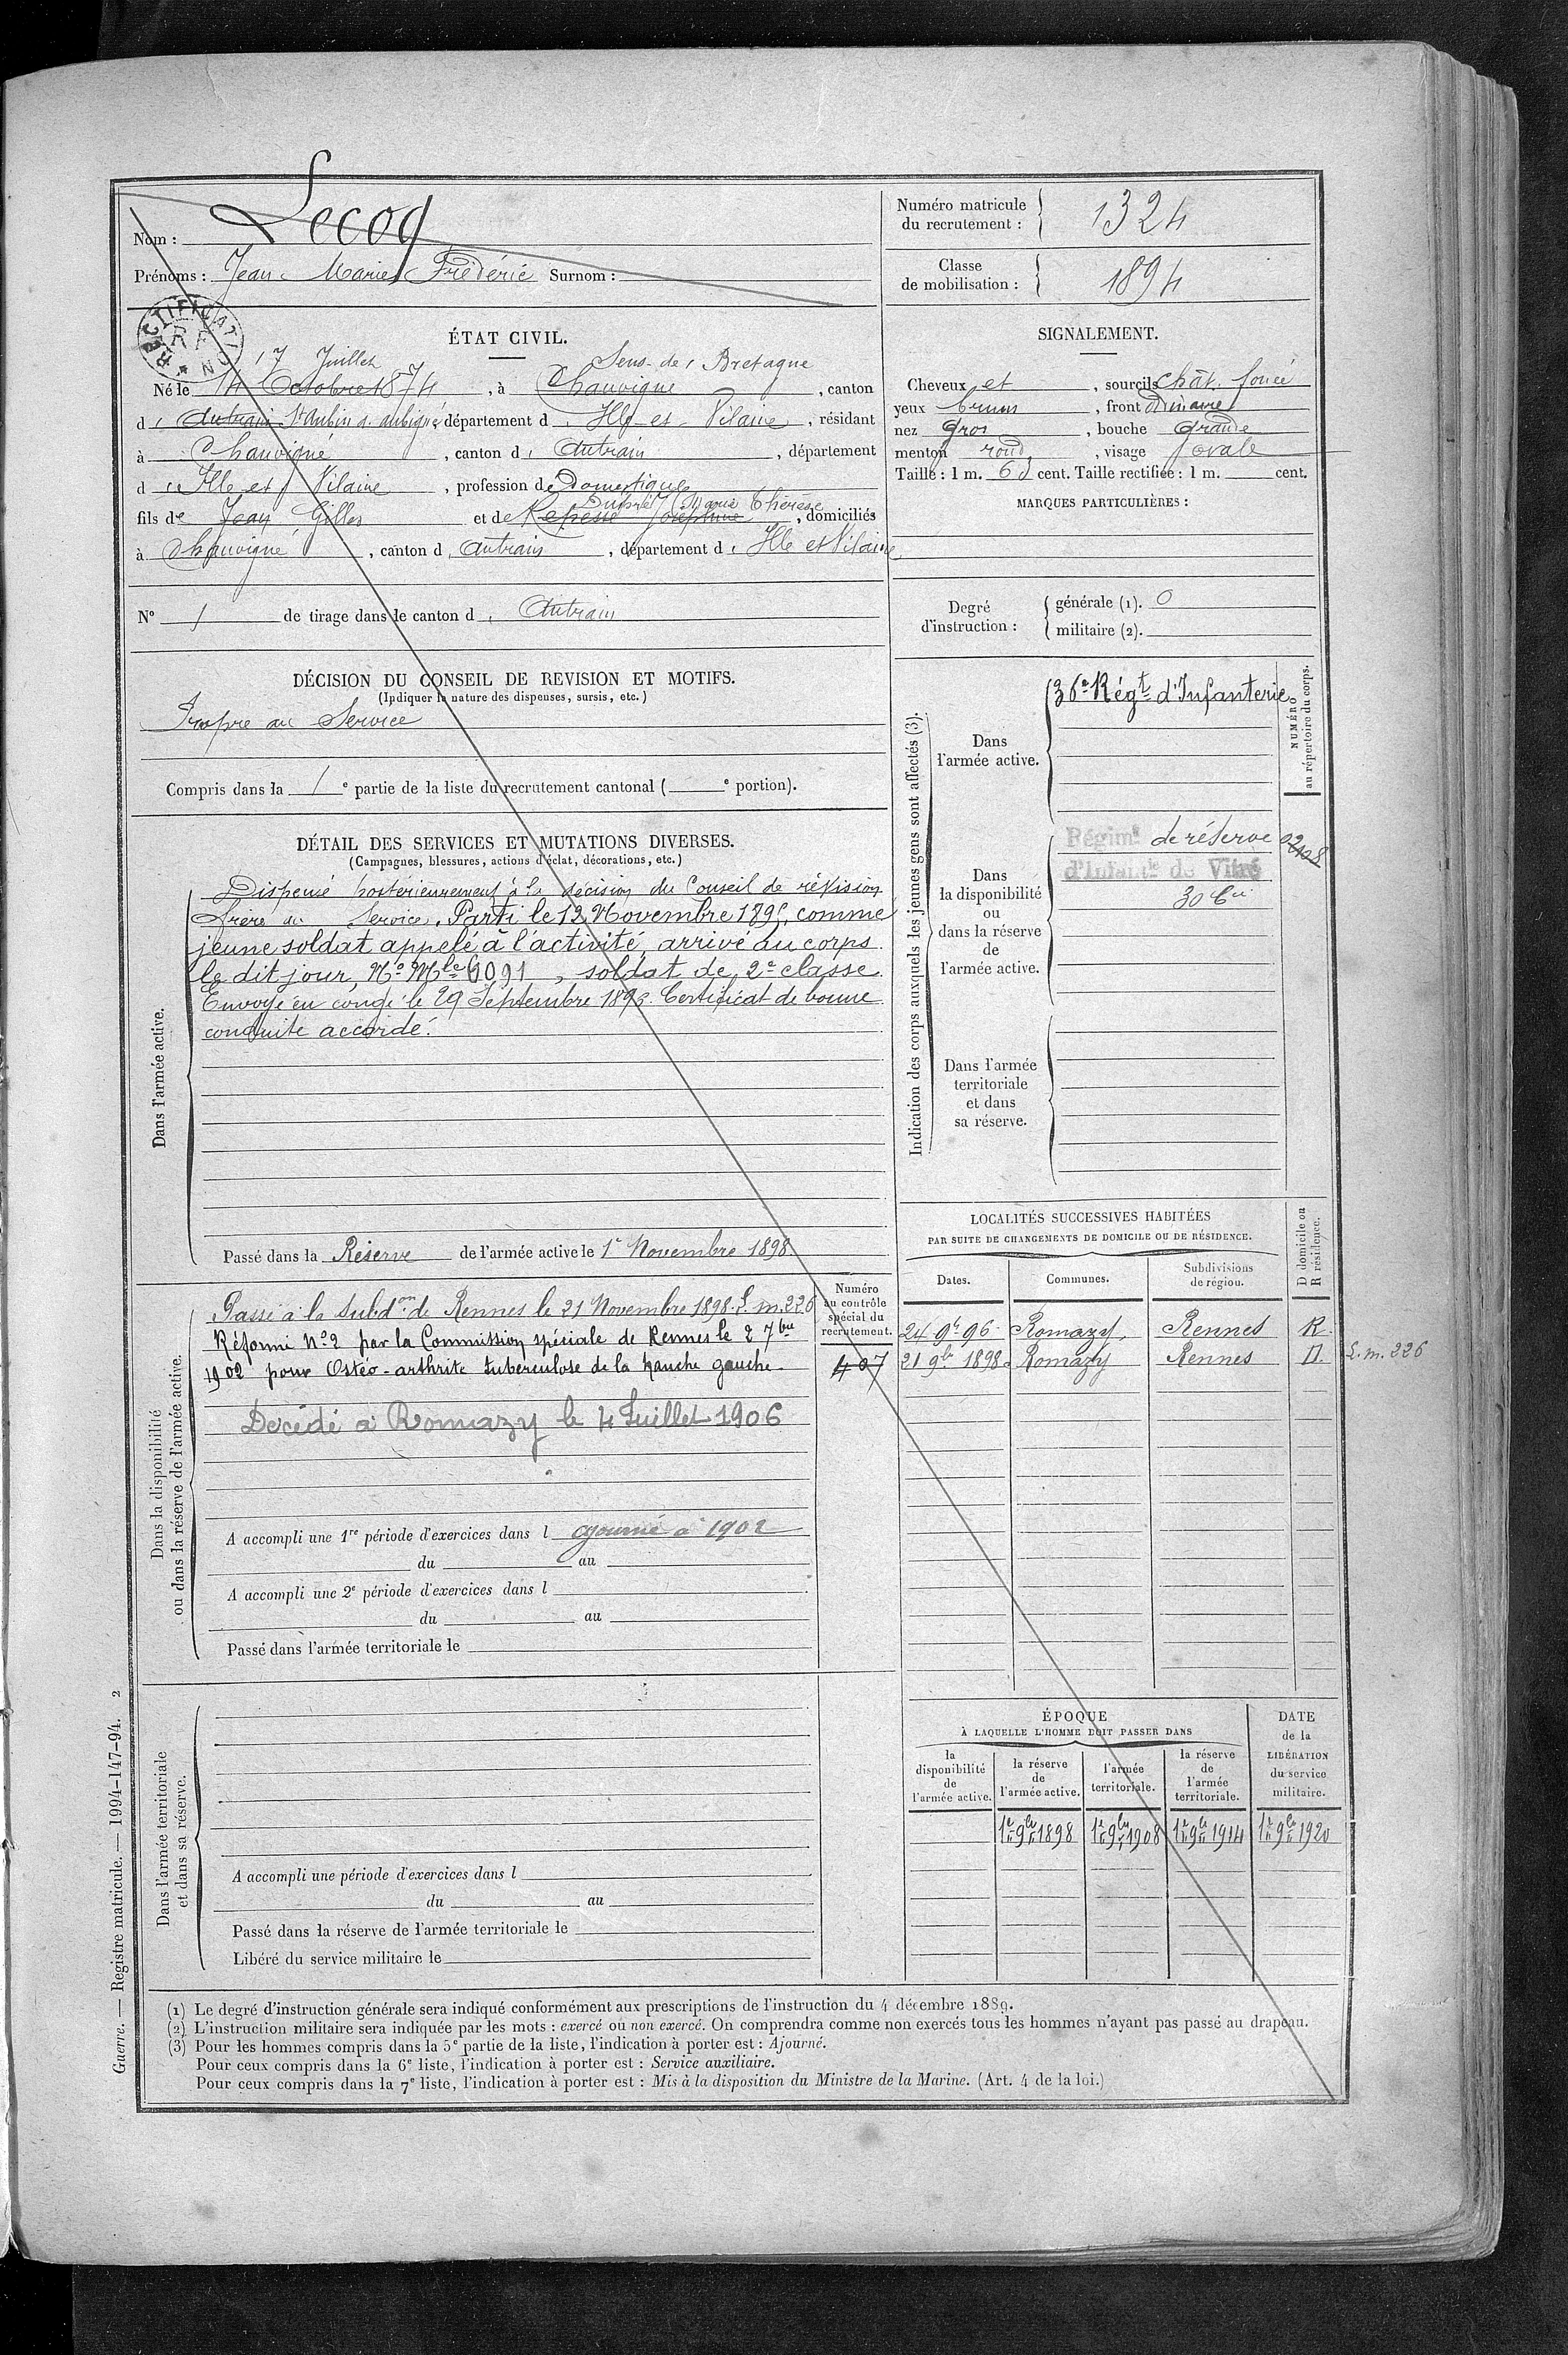 Nom : Lecoq
Prénoms : Jean Marie Frédéric Surnom :
Numéro matricule du recrutement : 1324
Classe de mobilisation : 1894
RECTIFICATION
ÉTAT CIVIL.
17 Juillet Sens-de-Bretagne
Né le 14 Octobre 1874, à Chauvigné, canton
d' Antrain St Aubin d'aubigné département d' Ille-et-Vilaine, résidant
à Chauvigné, canton d' Antrain, département
d' Ille et Vilaine, profession de Domestique
Dupré Marie Thérèse
fils de Jean Gilles et de Joséphine, domiciliés
à Chauvigné, canton d' Antrain, département d' Ille et Vilaine
SIGNALEMENT.
Cheveux et, sourcils chât. foncé
yeux bruns, front Ordinaire
nez Gros, bouche Grande
menton rond, visage ovale
Taille : 1 m. cent. Taille rectifiée : 1 m. cent.
MARQUES PARTICULIÈRES :
N° 1 de tirage dans le canton d' Antrain
Degré d'instruction : générale (1). 0
militaire (2).
DÉCISION DU CONSEIL DE REVISION ET MOTIFS.
(Indiquer la nature des dispenses, sursis, etc.)
Propre au Service
Compris dans la 1e partie de la liste du recrutement cantonal ( e portion).
DÉTAIL DES SERVICES ET MUTATIONS DIVERSES.
(Campagnes, blessures, actions d'éclat, décorations, etc.)
Dans l'armée active.
Dispensé postérieurement à la décision du Conseil de révision
frère au Service. Parti le 12 Novembre 1895, comme
jeune soldat appelé à l'activité, arrivé au corps
le dit jour, N° Mle 6091, soldat de 2e classe
Envoyé en congé le 29 Septembre 1896. Certificat de bonne
conduite accordé.
Passé dans la Réserve de l'armée active le 1er Novembre 1898.
Indication des corps auxquels les jeunes gens sont affectés (3).
NUMÉRO au répertoire du corps.
Dans l'armée active.
36e Régt d'Infanterie
Dans la disponibilité ou dans la réserve de l'armée active.
Régimt de réserve
d'Infantie de Vitré
Dans l'armée territoriale et dans sa réserve.
Dans la disponibilité ou dans la réserve de l'armée active.
Passé à la Subdon de Rennes le 21 Novembre 1898. L. m. 226
Réformé N° 2 par la Commission spéciale de Rennes le 2 7bre
1902 pour Ostéo-arthrite tuberculose de la hanche gauche.
Décédé à Romazy le 4 Juillet 1906
Numéro au contrôle spécial du recrutement.
407
A accompli une 1re période d'exercices dans l ajourné à 1902
du au
A accompli une 2e période d'exercices dans l
du au
Passé dans l'armée territoriale le
LOCALITÉS SUCCESSIVES HABITÉES
PAR SUITE DE CHANGEMENTS DE DOMICILE OU DE RÉSIDENCE.
D domicile ou R résidence.
Dates. Communes. Subdivisions de région.
24 9e 96 Romazy Rennes R
21 9bre 1898 Romazy Rennes D. L. m. 226
Dans l'armée territoriale et dans sa réserve.
A accompli une période d'exercices dans l
du au
Passé dans la réserve de l'armée territoriale le
Libéré du service militaire le
ÉPOQUE
À LAQUELLE L'HOMME DOIT PASSER DANS
la disponibilité de l'armée active.
la réserve de l'armée active.
l'armée territoriale.
la réserve de l'armée territoriale.
DATE de la LIBÉRATION du service militaire.
1er 9bre 1898 1er 9bre 1908 1er 9bre 1914 1er 9bre 1920
(1) Le degré d'instruction générale sera indiqué conformément aux prescriptions de l'instruction du 4 décembre 1889.
(2) L'instruction militaire sera indiquée par les mots : exercé ou non exercé. On comprendra comme non exercés tous les hommes n'ayant pas passé au drapeau.
(3) Pour les hommes compris dans la 5e partie de la liste, l'indication à porter est : Ajourné.
Pour ceux compris dans la 6e liste, l'indication à porter est : Service auxiliaire.
Pour ceux compris dans la 7e liste, l'indication à porter est : Mis à la disposition du Ministre de la Marine. (Art. 4 de la loi.)
Guerre. — Registre matricule. — 1994-147-94. 2